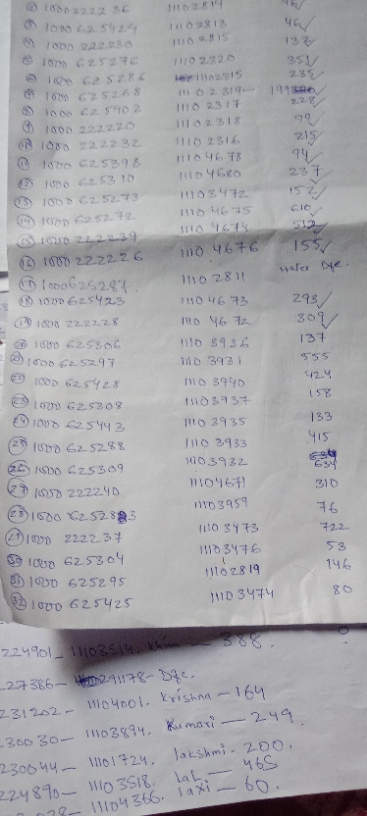 1000 222236 11102814
1000 625424 11102813 46
1000 222230 11102815 137
1000 625276 11102320 351
1000 625286 11102315 238
1000 625268 11102319
1000 625402 11102317 228
1000 222220 11102318 92
1000 222232 11102316 215
1000 625398 11104678 94
1000 625310 11104680 237
1000 625273 11103472 152
1000 625272 11104675 610
1000 222239 11104674 512
16 1000 222226 11104676 155
17 1000625287 11102811 water Dfc.
18 1000 625423 11104673 293
19 1000 222228 11104672 309
20 1000 625306 11103936 137
21 1000 625297 11103931 555
22 1000 625428 11103940 424
23 1000 625308 11103937 158
24 1000 625443 11103935 133
25 1000 625288 11103933 415
26 1000 625309 11103932 634
27 1000 222240 11104671 310
28 1000 625283 11103959 76
29 1000 222237 11103473 722
30 1000 625304 11103476 53
31 1000 625295 11102819 146
32 1000 625425 11103474 80
224901- 11103514. khim - 388.
227386- 0291178- Dfc.
231202- 11104001. Krishna - 164
230030- 11103894. Kumari - 249.
230044- 11101724. lakshmi - 200.
224890- 11103518. Lal. - 465
11104366. laxi - 60.